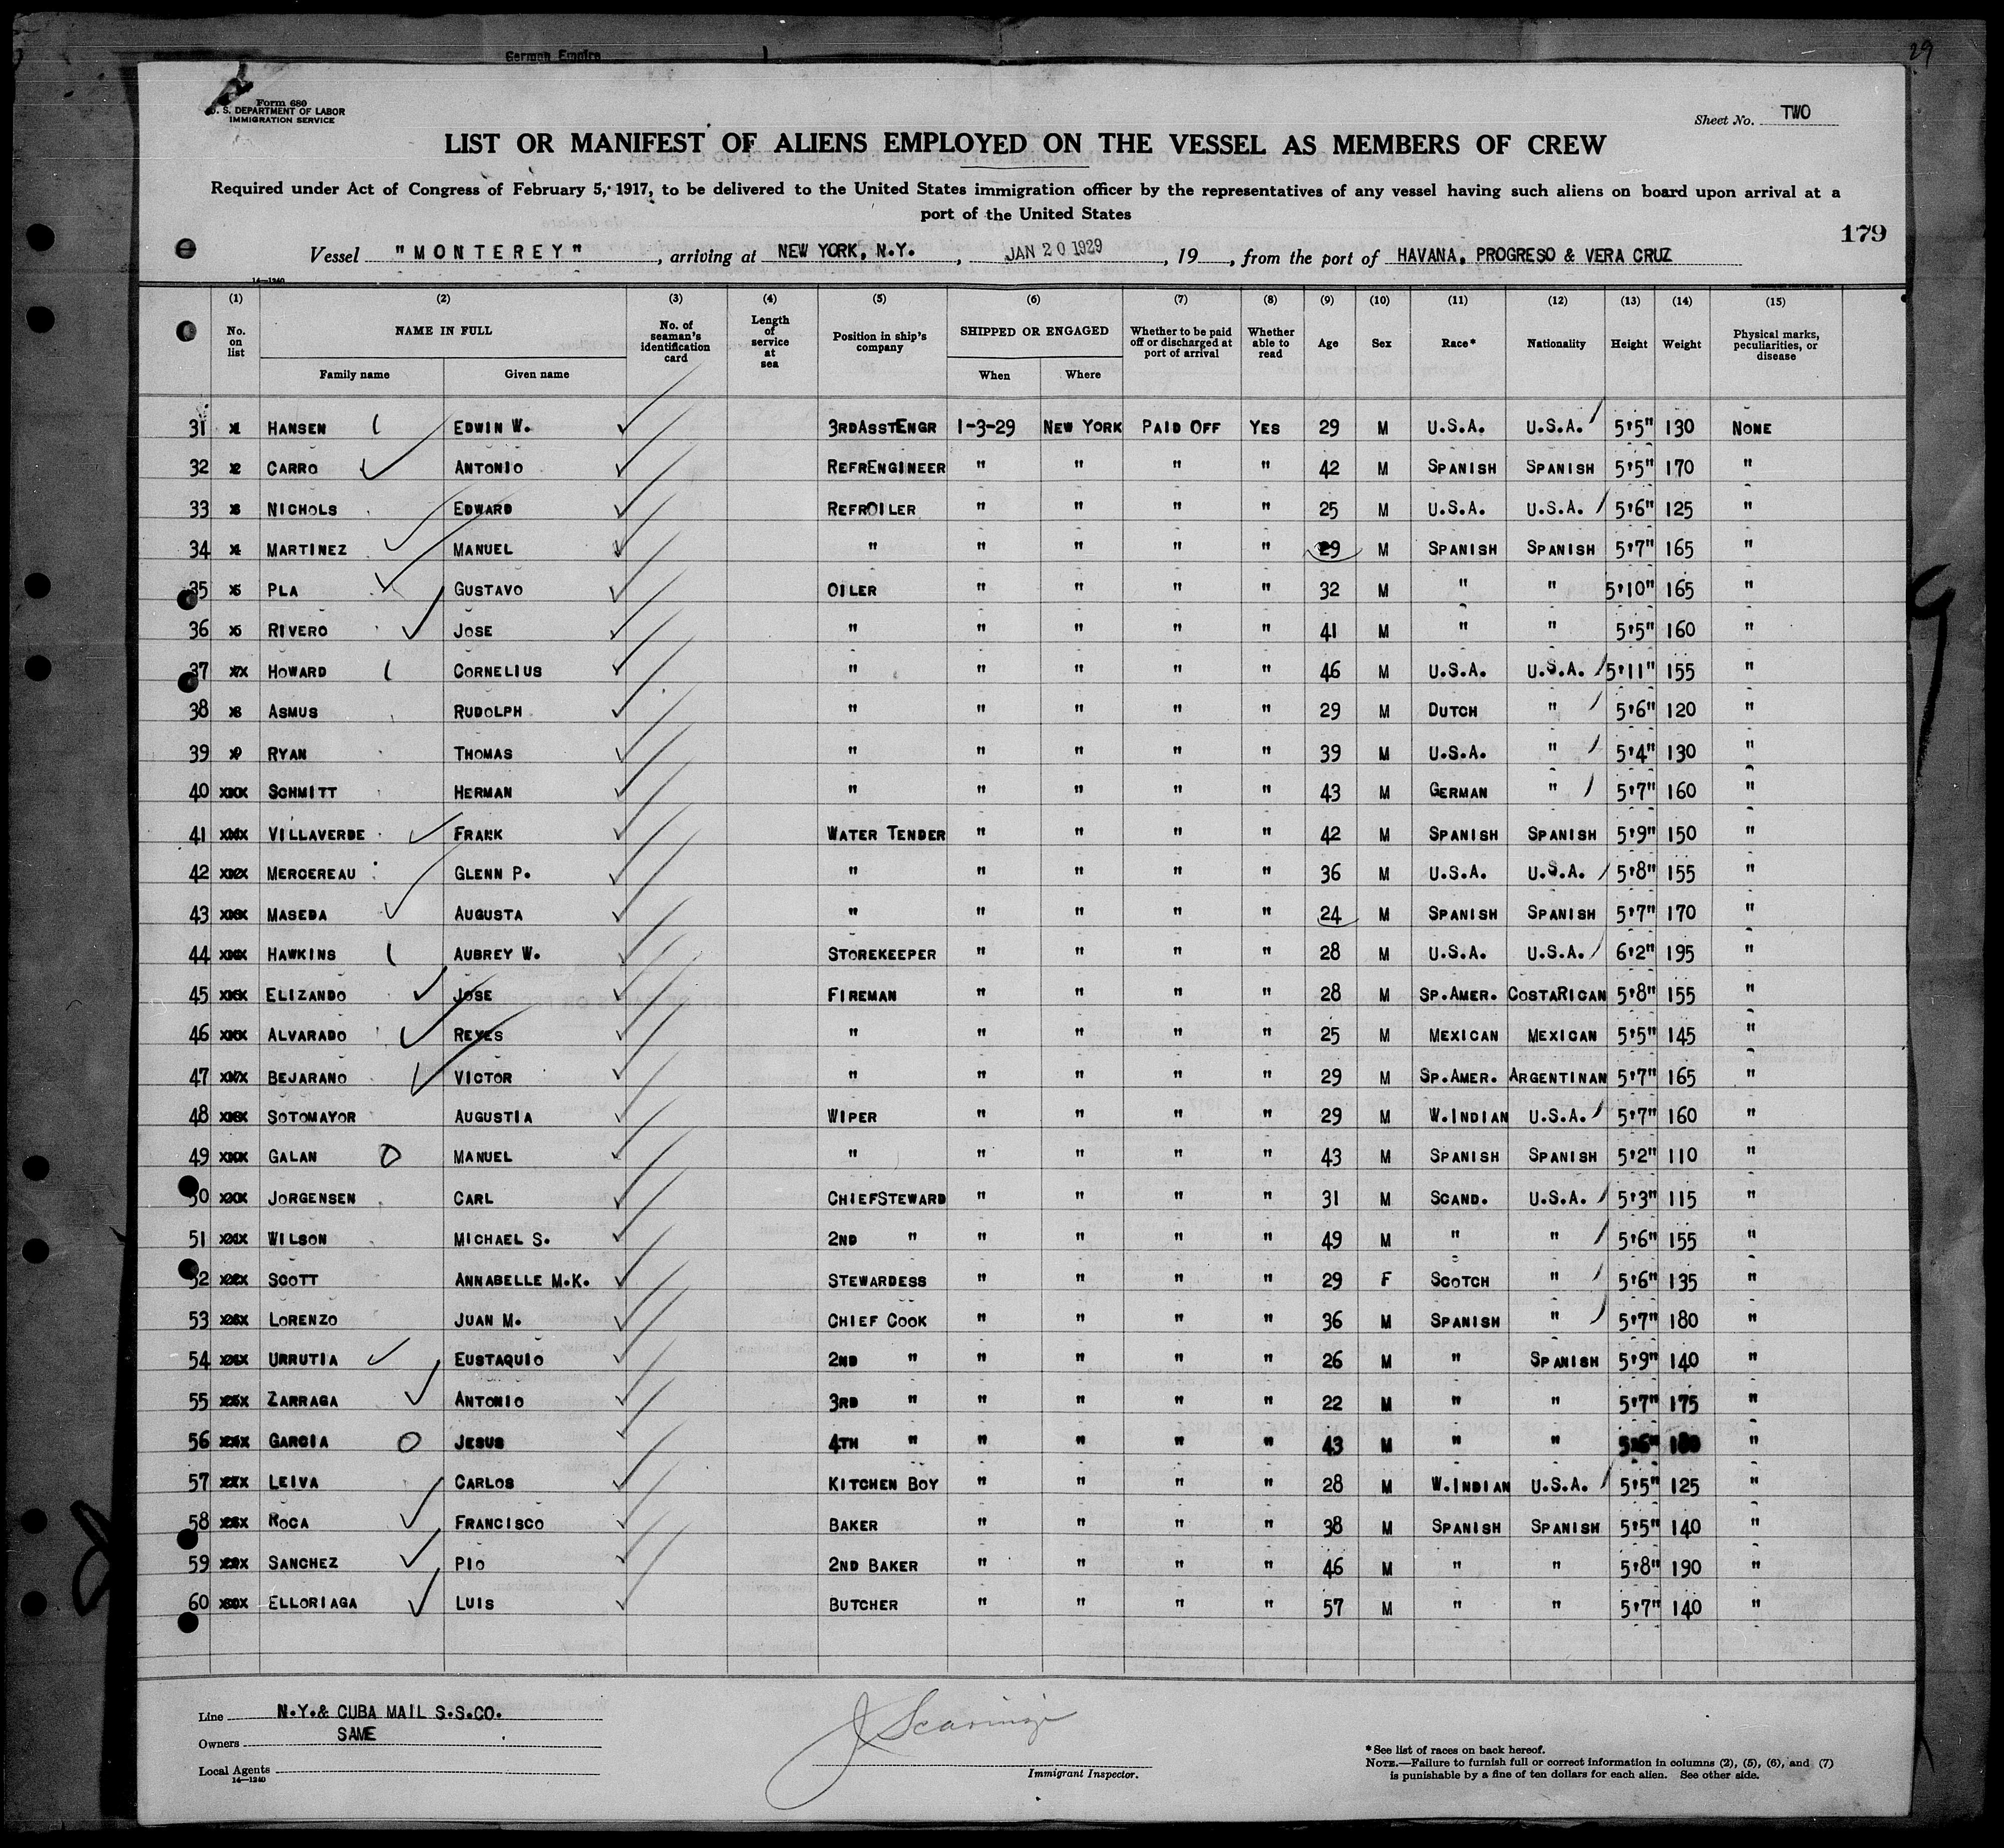 German Empire
29
Form 680
U. S. DEPARTMENT OF LABOR
IMMIGRATION SERVICE
Sheet No. TWO
LIST OR MANIFEST OF ALIENS EMPLOYED ON THE VESSEL AS MEMBERS OF CREW
Required under Act of Congress of February 5, 1917, to be delivered to the United States immigration officer by the representatives of any vessel having such aliens on board upon arrival at a
port of the United States
179
Vessel "MONTEREY", arriving at NEW YORK, N.Y., JAN 20 1929, 19, from the port of HAVANA, PROGRESO & VERA CRUZ
14—1240
(1) (2) (3) (4) (5) (6) (7) (8) (9) (10) (11) (12) (13) (14) (15)
No. on list NAME IN FULL Family name Given name No. of seaman's identification card Length of service at sea Position in ship's company SHIPPED OR ENGAGED When Where Whether to be paid off or discharged at port of arrival Whether able to read Age Sex Race* Nationality Height Weight Physical marks, peculiarities, or disease
31 HANSEN EDWIN W. 3RDASSTENGR 1-3-29 NEW YORK PAID OFF YES 29 M U.S.A. U.S.A. 5'5" 130 NONE
32 CARRO ANTONIO REFRENGINEER " " " " 42 M SPANISH SPANISH 5'5" 170 "
33 NICHOLS EDWARD REFROILER " " " " 25 M U.S.A. U.S.A. 5'6" 125 "
34 MARTINEZ MANUEL " " " " " 29 M SPANISH SPANISH 5'7" 165 "
35 PLA GUSTAVO OILER " " " " 32 M " " 5'10" 165 "
36 RIVERO JOSE " " " " " 41 M " " 5'5" 160 "
37 HOWARD CORNELIUS " " " " " 46 M U.S.A. U.S.A. 5'11" 155 "
38 ASMUS RUDOLPH " " " " " 29 M DUTCH " 5'6" 120 "
39 RYAN THOMAS " " " " " 39 M U.S.A. " 5'4" 130 "
40 SCHMITT HERMAN " " " " " 43 M GERMAN " 5'7" 160 "
41 VILLAVERDE FRANK WATER TENDER " " " " 42 M SPANISH SPANISH 5'9" 150 "
42 MERCEREAU GLENN P. " " " " " 36 M U.S.A. U.S.A. 5'8" 155 "
43 MASEDA AUGUSTA " " " " " 24 M SPANISH SPANISH 5'7" 170 "
44 HAWKINS AUBREY W. STOREKEEPER " " " " 28 M U.S.A. U.S.A. 6'2" 195 "
45 ELIZANDO JOSE FIREMAN " " " " 28 M SP.AMER. COSTARICAN 5'8" 155 "
46 ALVARADO REYES " " " " " 25 M MEXICAN MEXICAN 5'5" 145 "
47 BEJARANO VICTOR " " " " " 29 M SP.AMER. ARGENTINAN 5'7" 165 "
48 SOTOMAYOR AUGUSTIA WIPER " " " " 29 M W.INDIAN U.S.A. 5'7" 160 "
49 GALAN MANUEL " " " " " 43 M SPANISH SPANISH 5'2" 110 "
50 JORGENSEN CARL CHIEFSTEWARD " " " " 31 M SCAND. U.S.A. 5'3" 115 "
51 WILSON MICHAEL S. 2ND " " " " " 49 M " " 5'6" 155 "
52 SCOTT ANNABELLE M.K. STEWARDESS " " " " 29 F SCOTCH " 5'6" 135 "
53 LORENZO JUAN M. CHIEF COOK " " " " 36 M SPANISH " 5'7" 180 "
54 URRUTIA EUSTAQUIO 2ND " " " " " 26 M " SPANISH 5'9" 140 "
55 ZARRAGA ANTONIO 3RD " " " " " 22 M " " 5'7" 175 "
56 GARCIA JESUS 4TH " " " " " 43 M " " 5'6" "
57 LEIVA CARLOS KITCHEN BOY " " " " 28 M W.INDIAN U.S.A. 5'5" 125 "
58 ROCA FRANCISCO BAKER " " " " 38 M SPANISH SPANISH 5'5" 140 "
59 SANCHEZ PIO 2ND BAKER " " " " 46 M " " 5'8" 190 "
60 ELLORIAGA LUIS BUTCHER " " " " 57 M " " 5'7" 140 "
Line N.Y.& CUBA MAIL S.S.CO.
Owners SAME
Local Agents
14—1240
Immigrant Inspector.
*See list of races on back hereof.
NOTE.—Failure to furnish full or correct information in columns (2), (5), (6), and (7)
is punishable by a fine of ten dollars for each alien. See other side.